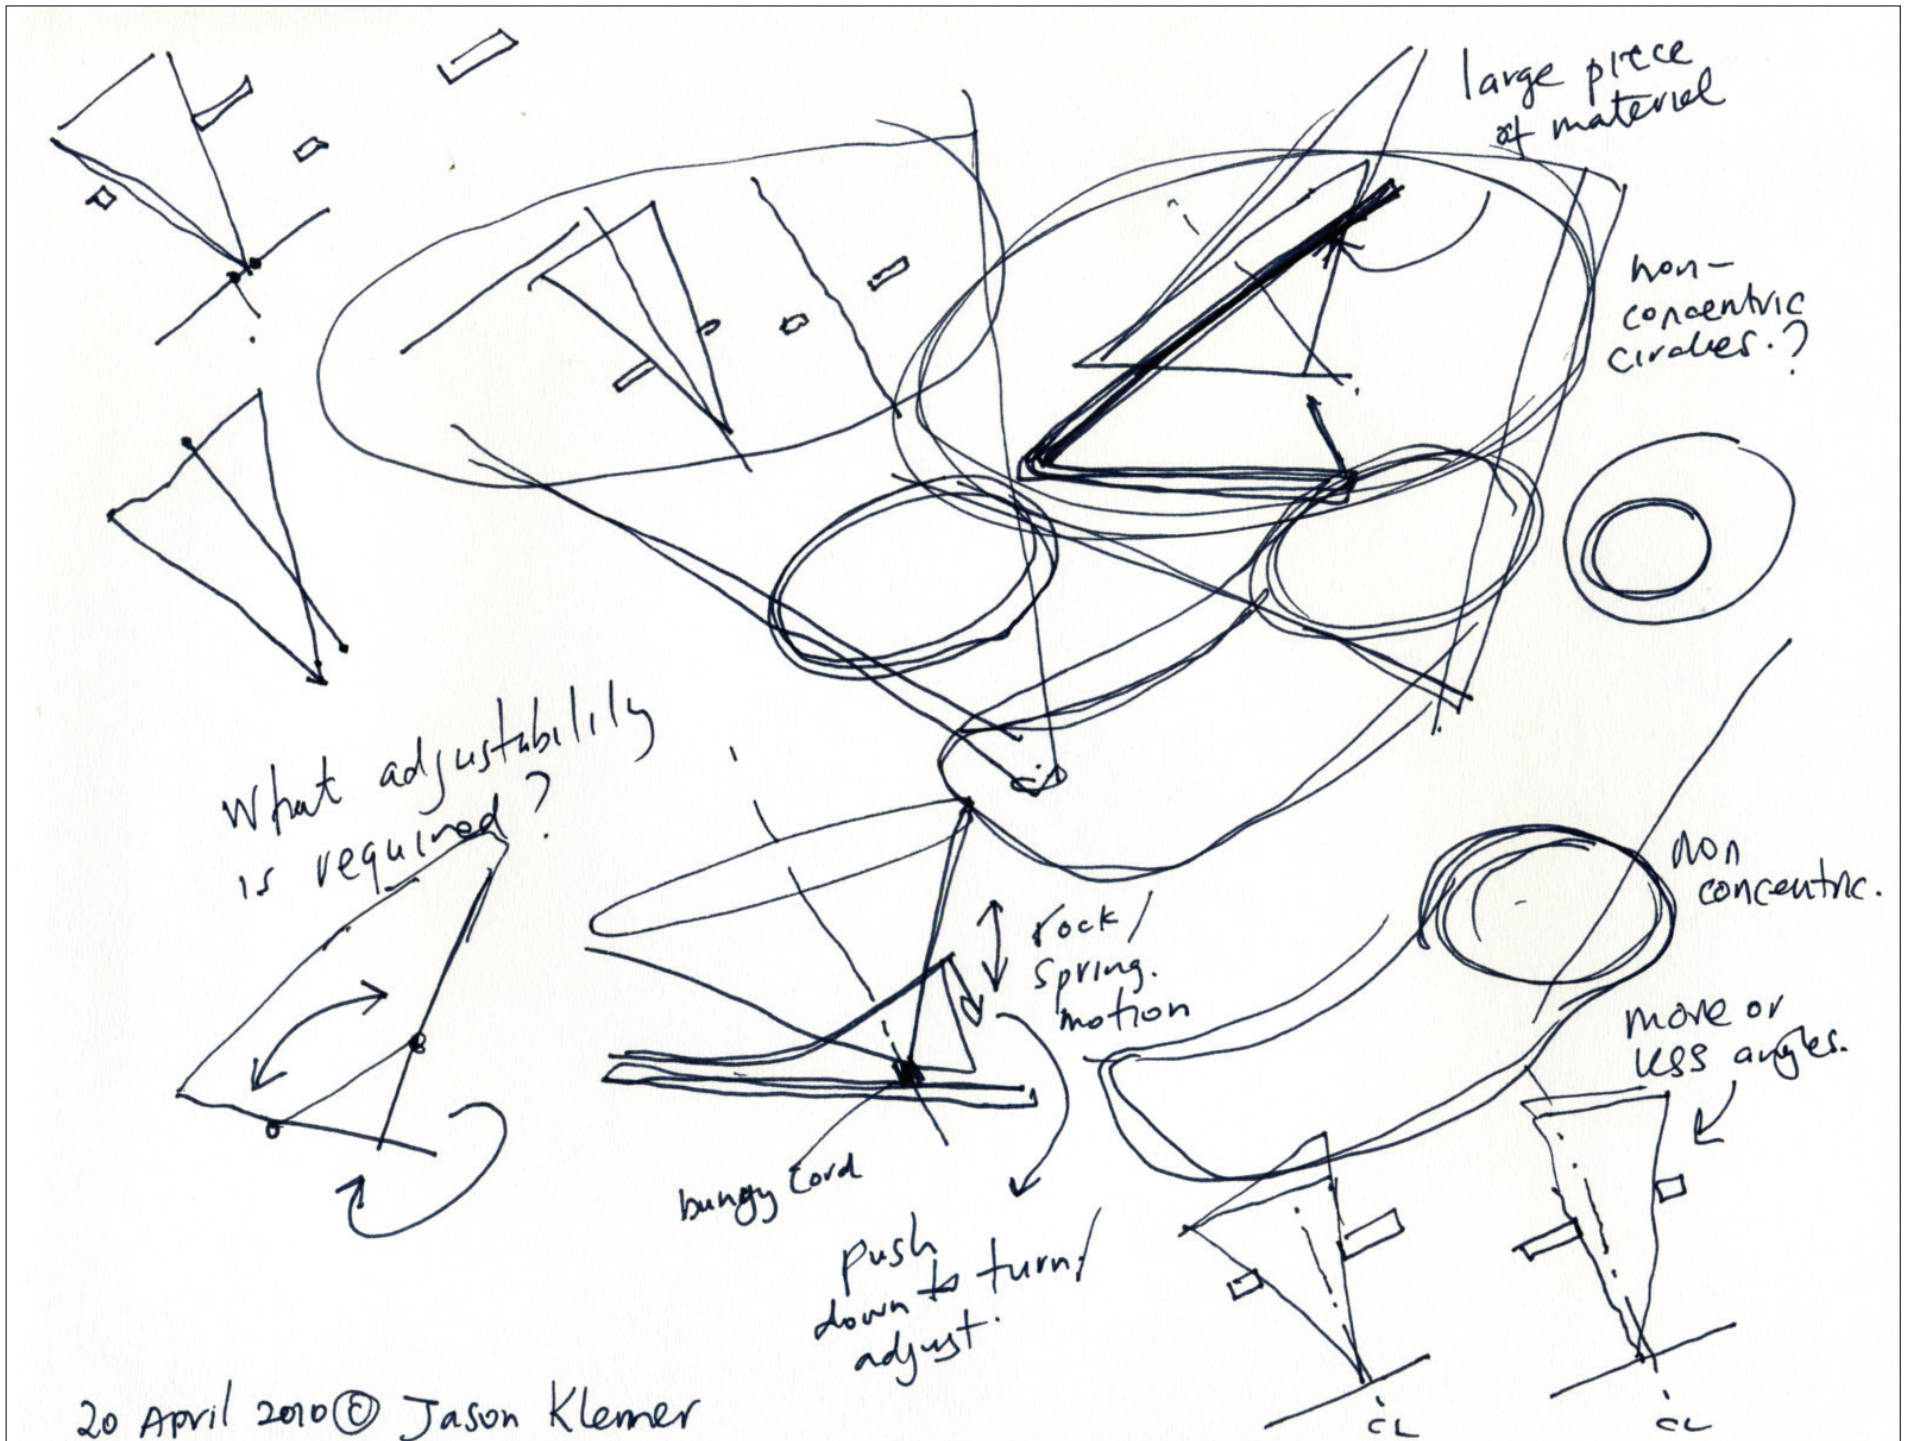 large piece
of material
non-
concentric
circles.?
What adjustability
is required?
non
concentric.
rock/
spring.
motion
more or
less angles.
bungy cord
push
down to turn/
adjust.
CL
CL
20 April 2010 © Jason Klemer